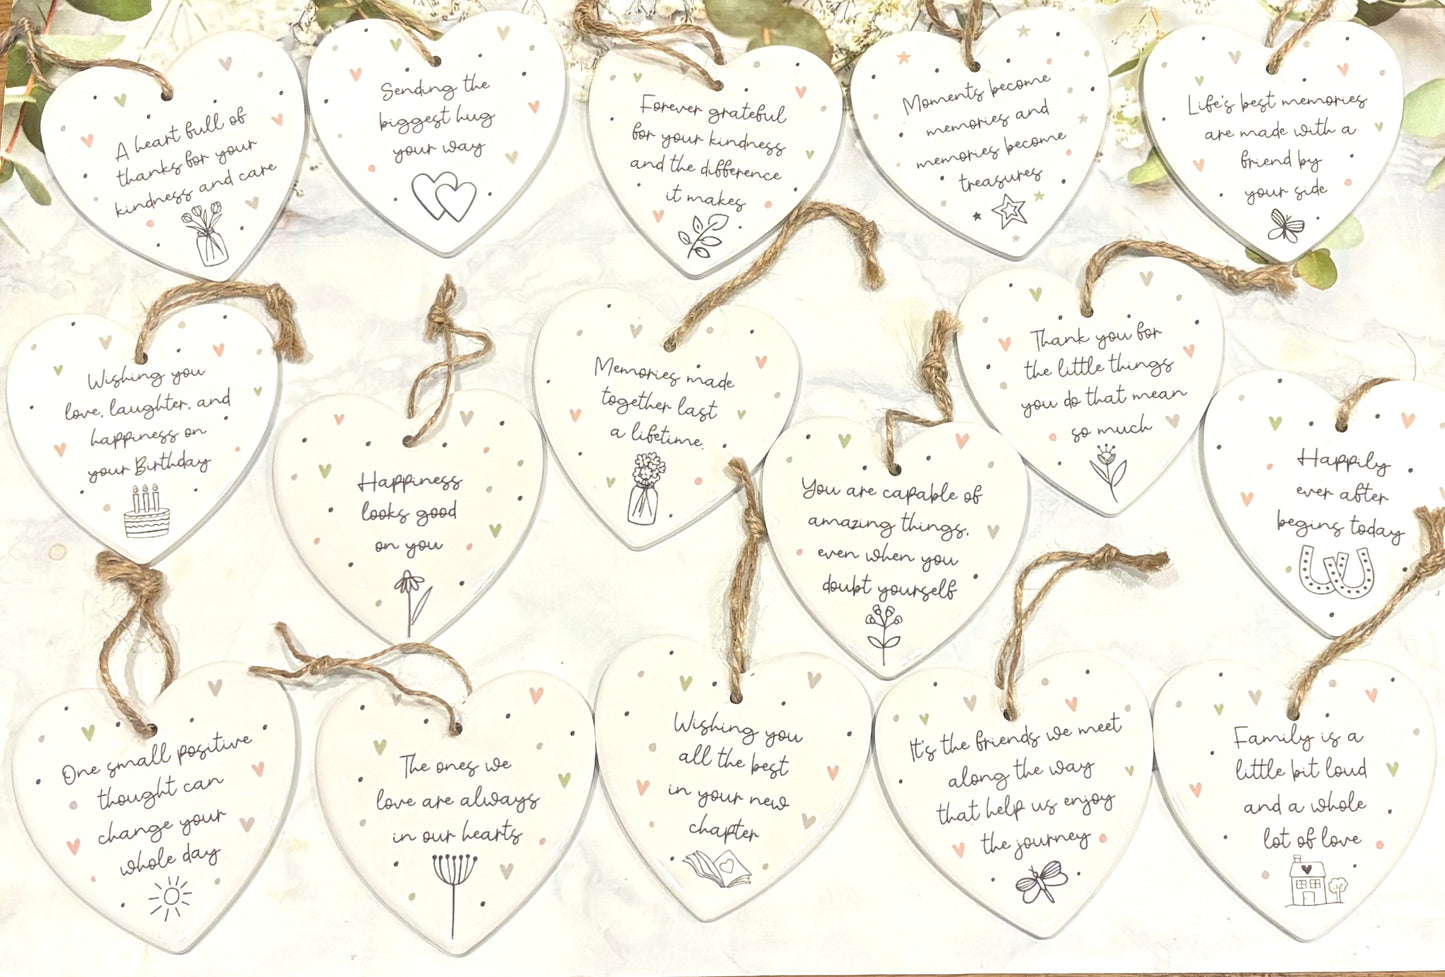 A heart full of
thanks for your
kindness and care
Sending the
biggest hug
your way
Forever grateful
for your kindness
and the difference
it makes
Moments become
memories and
memories become
treasures
Life's best memories
are made with a
friend by
your side
Wishing you
love, laughter, and
happiness on
your Birthday
Happiness
looks good
on you
Memories made
together last
a lifetime
You are capable of
amazing things,
even when you
doubt yourself
Thank you for
the little things
you do that mean
so much
Happily
ever after
begins today
One small positive
thought can
change your
whole day
The ones we
love are always
in our hearts
Wishing you
all the best
in your new
chapter
It's the friends we meet
along the way
that help us enjoy
the journey
Family is a
little bit loud
and a whole
lot of love